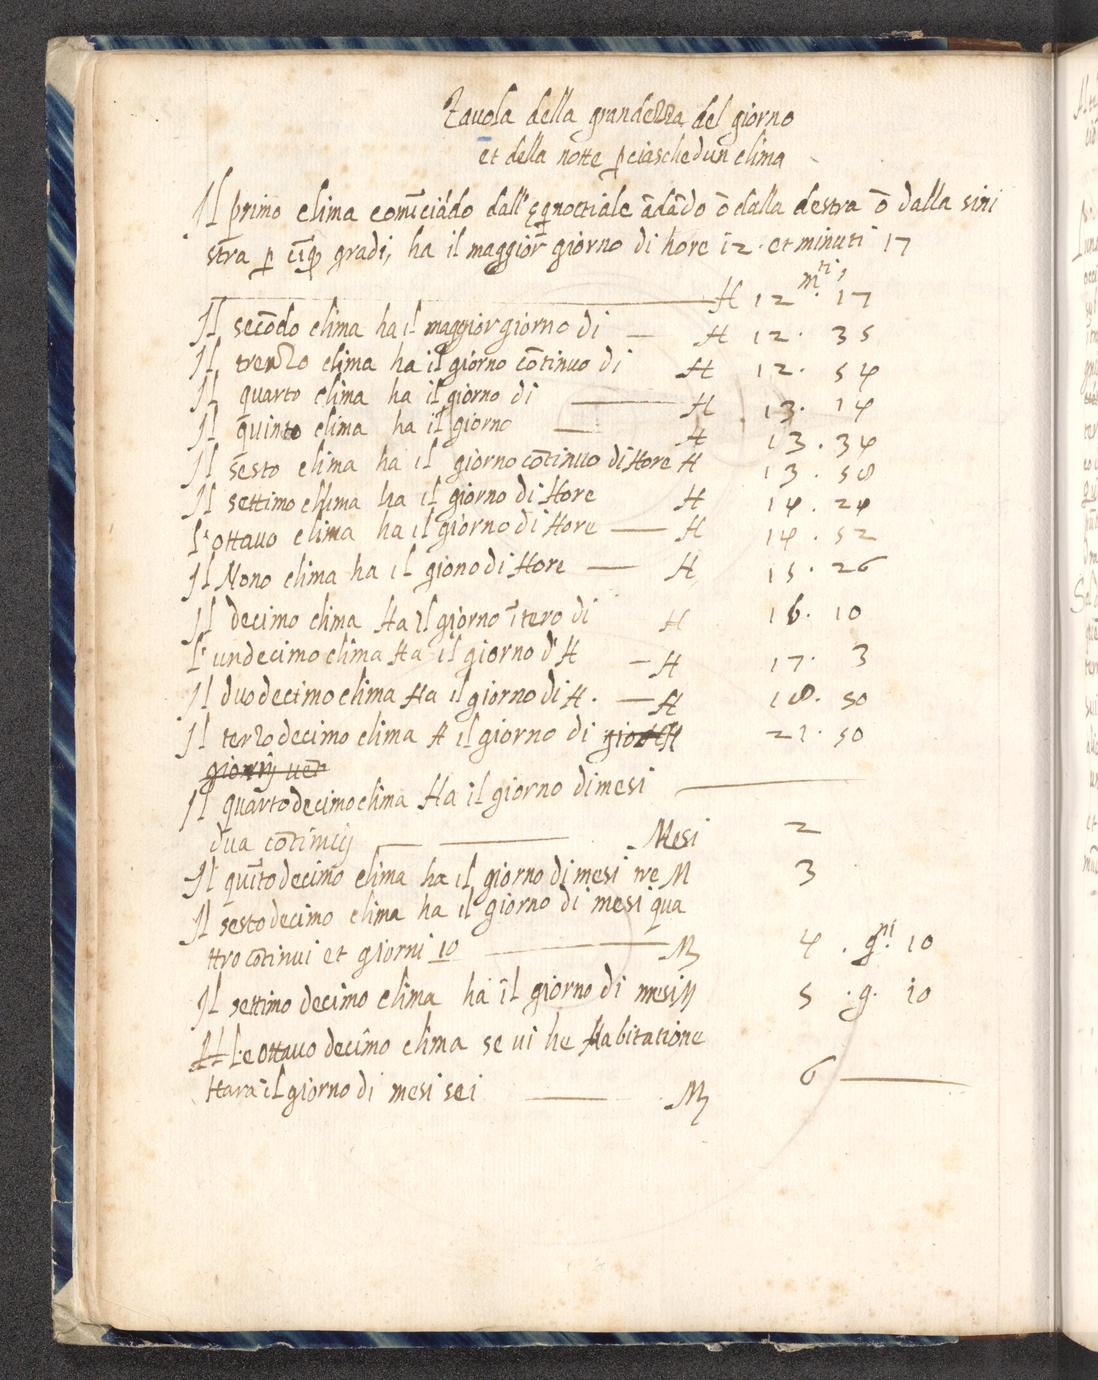 Tavola della grandezza del giorno
et della notte p ciaschedun clima
Il primo clima comīciādo dall'eq̄noctiale ādādo ō dalla destra ō dalla sini
stra p cīq gradi, ha il maggior giorno di hore 12 · et minuti 17
H 12 mti · 17
Il secōdo clima ha il maggior giorno di — H 12 · 35
Il terzo clima ha il giorno cōtinuo di H 12 · 54
Il quarto clima ha il giorno di — H 13 · 14
Il quinto clima ha il giorno — H 13 · 34
Il sesto clima ha il giorno cōtinuo di Hore H 13 · 58
Il settimo clima ha il giorno di Hore H 14 · 24
L'ottauo clima ha il giorno di Hore — H 14 · 52
Il Nono clima ha il giono di Hore — H 15 · 26
Il decimo clima Ha il giorno ītero di H 16 · 10
L'undecimo clima Ha il giorno d'H — H 17 · 3
Il duodecimo clima Ha il giorno di H · — H 18 · 50
Il terzodecimo clima H il giorno di H 21 · 50
giornij
Il quartodecimo clima Ha il giorno di mesi —
dua cōtinuij — Mesi 2
Il quītodecimo clima ha il giorno di mesi tre M 3
Il sestodecimo clima ha il giorno di mesi qua
ttro cōtinui et giorni 10 — M 4 · gni 10
Il settimo decimo clima ha il giorno di mesi 5 · g · 10
L'e ottauo decimo clima se ui he Habitatione
Hara il giorno di mesi sei — M 6 —